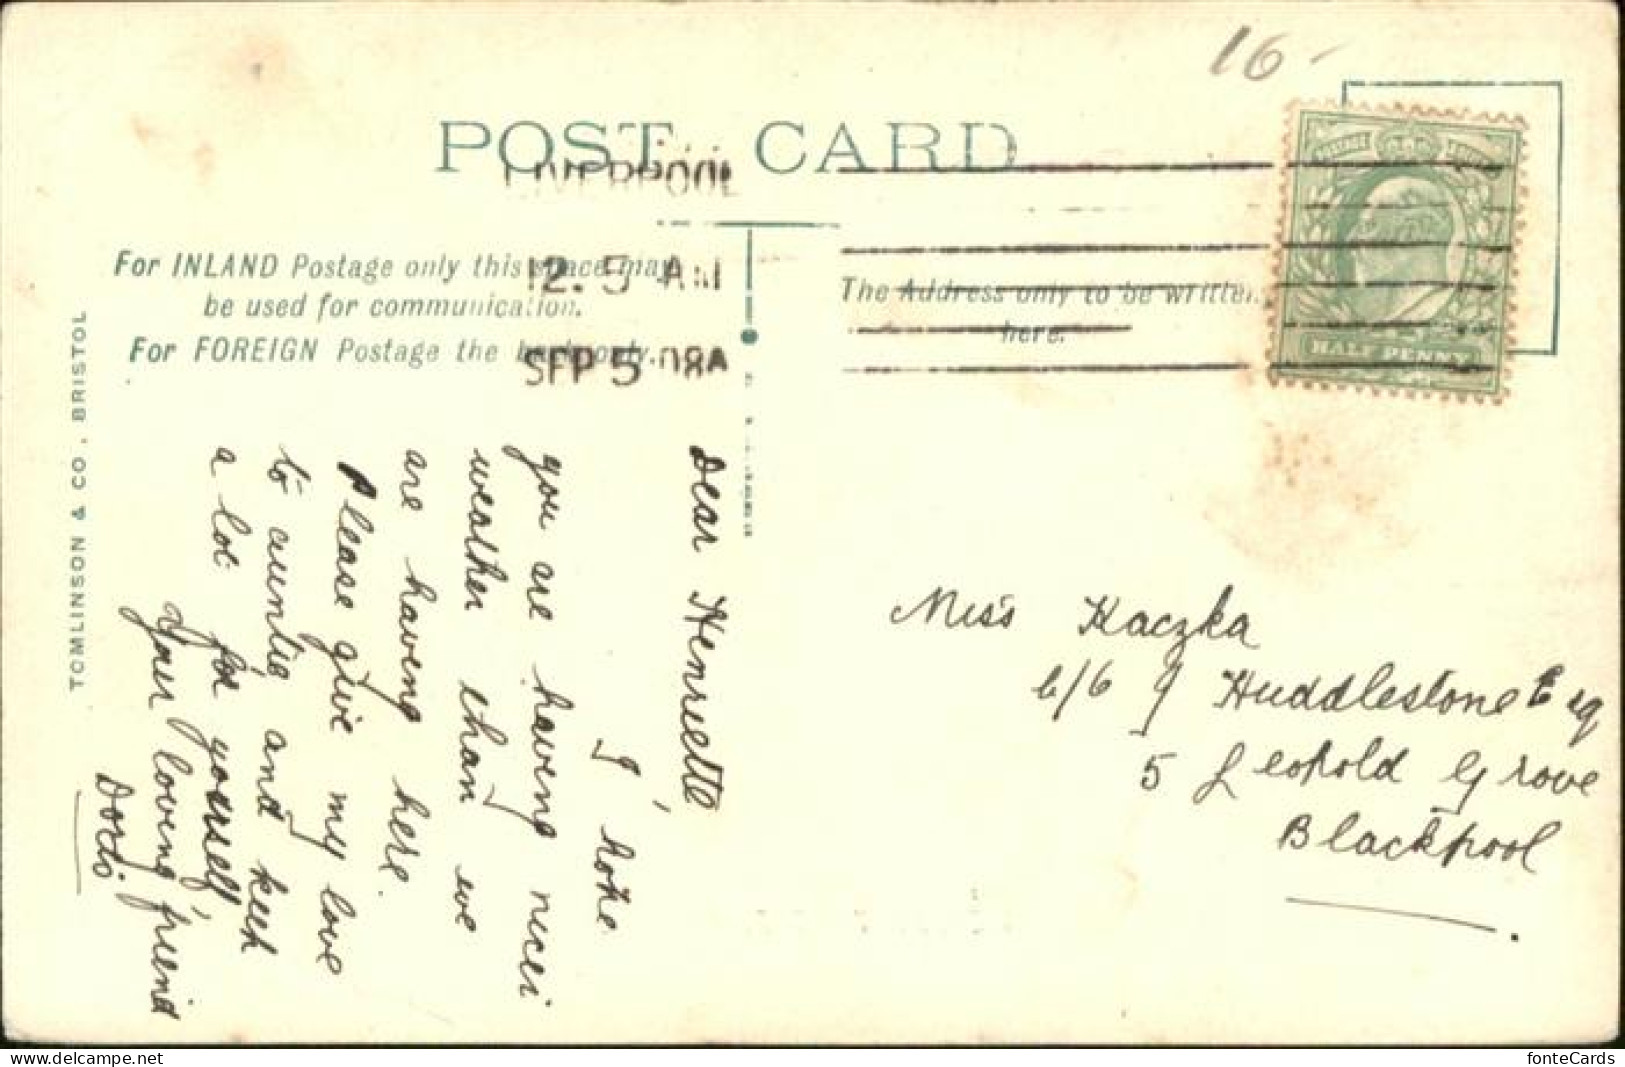 16-
POST CARD
LIVERPOOL
12.5 AM
SEP 5 08A
For INLAND Postage only this space may
be used for communication.
For FOREIGN Postage the back only.
The Address only to be written
here.
HALF PENNY
TOMLINSON & CO., BRISTOL
Dear Henrietta
I hope
you are having nicer
weather than we
are having here.
Please give my love
to auntie and keep
a lot for yourself
Your loving friend
Dordi
Miss Kaczka
c/o J Huddlestone Esq
5 Leopold Grove
Blackpool.
fonteCards